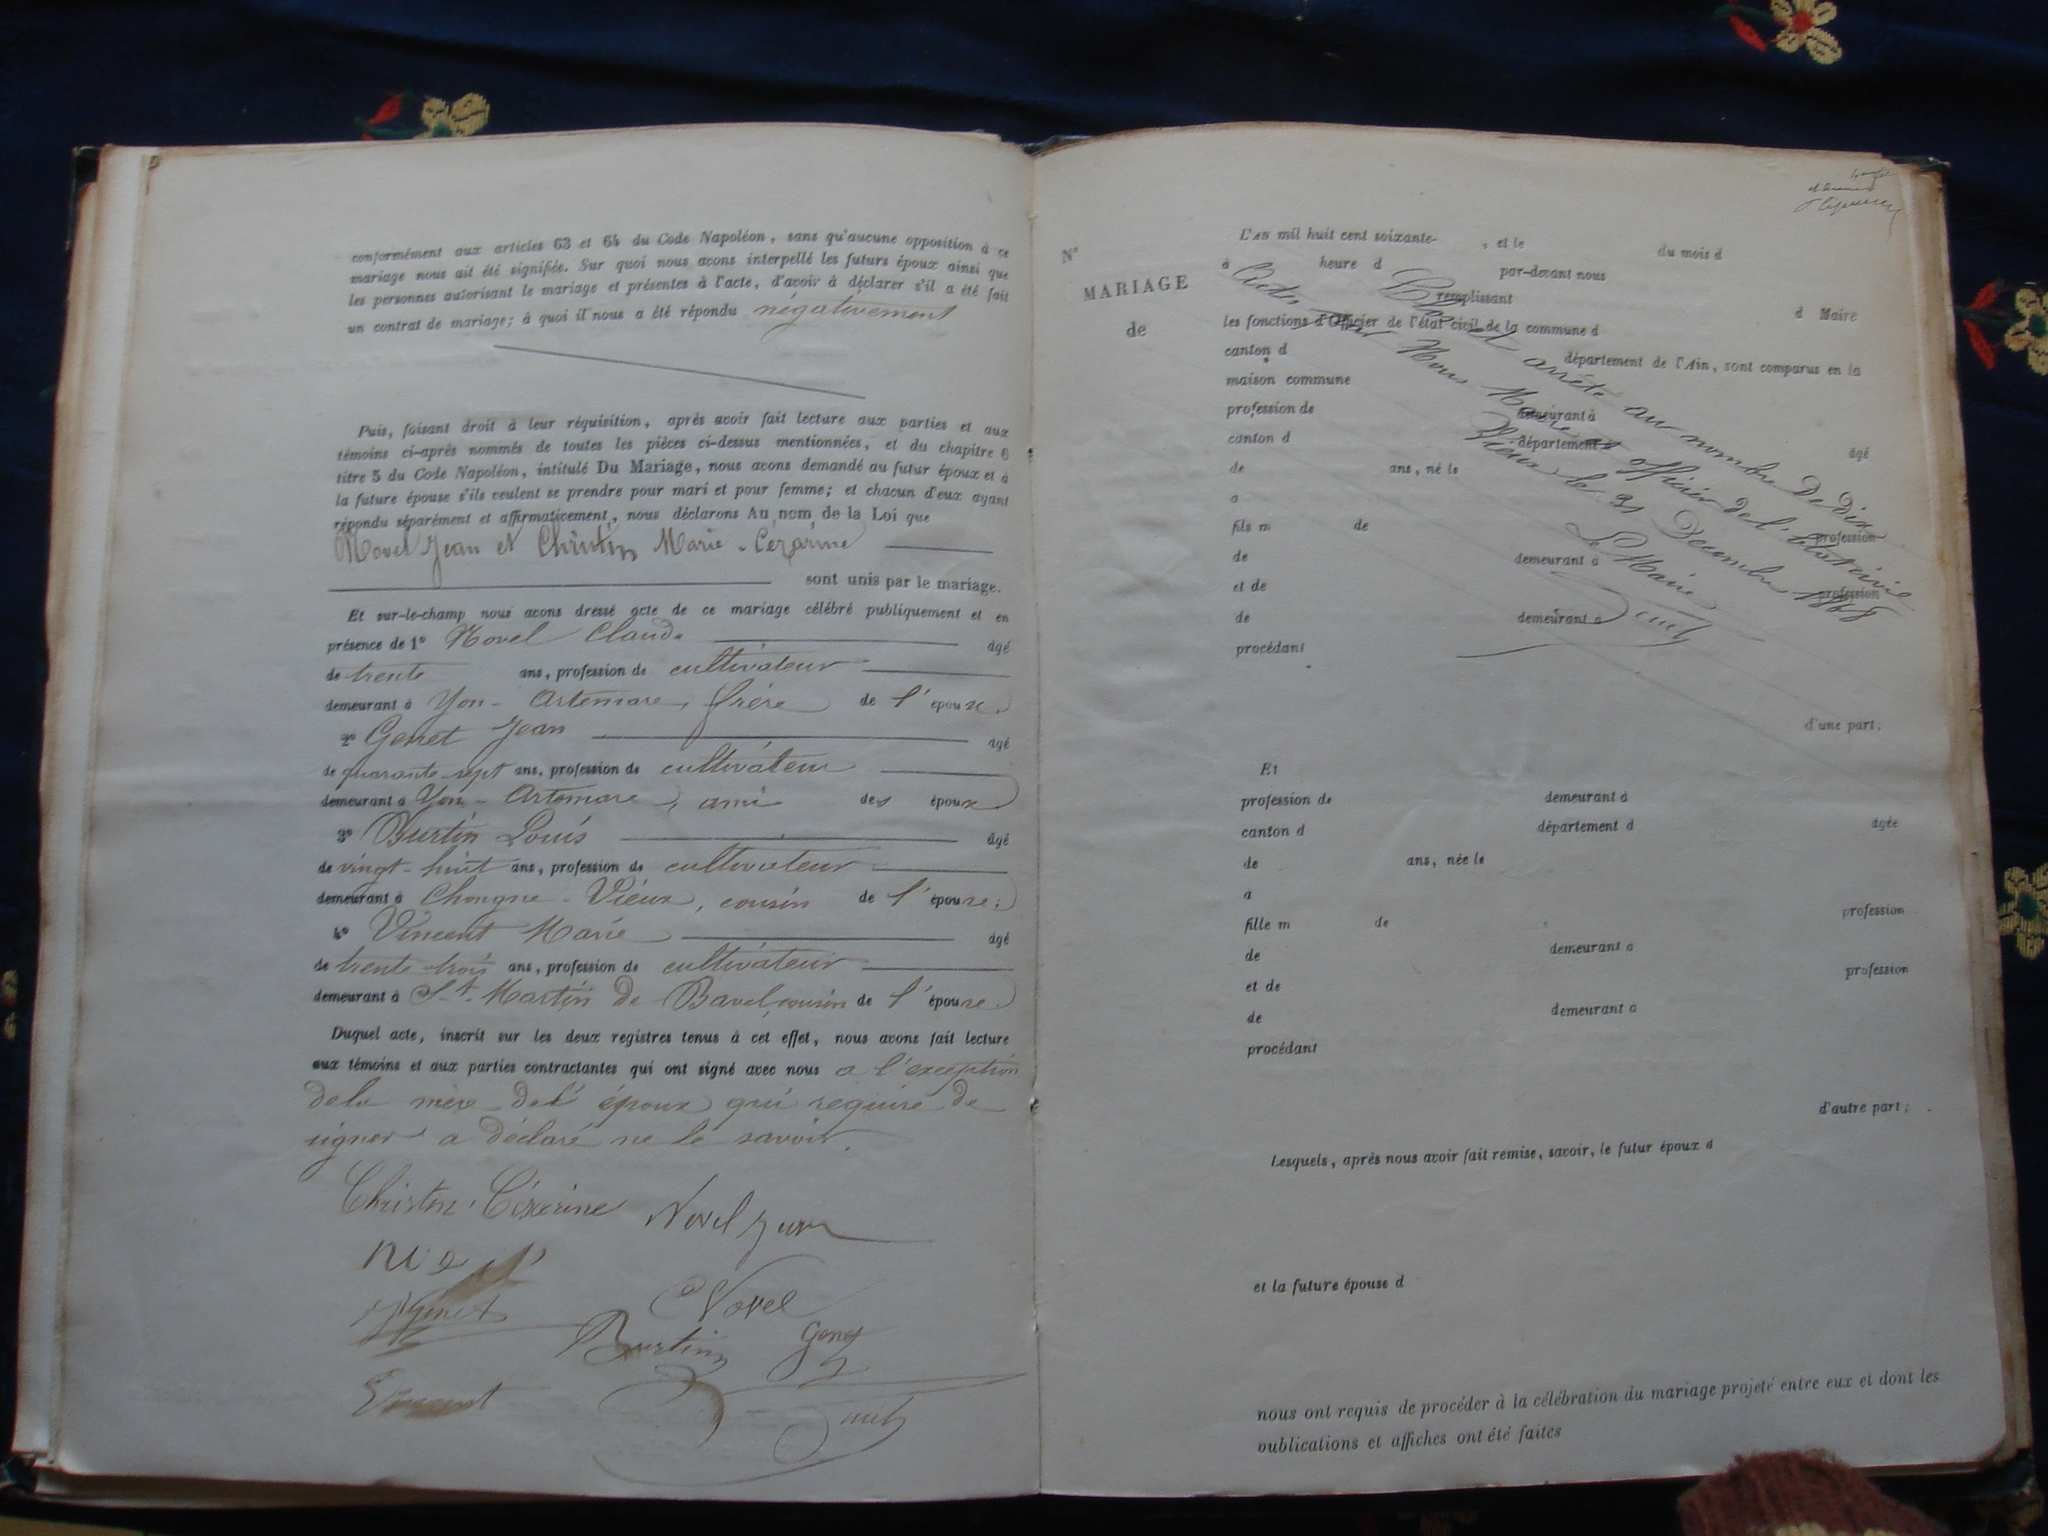 conformément aux articles 63 et 64 du Code Napoléon, sans qu'aucune opposition à ce
mariage nous ait été signifiée. Sur quoi nous avons interpellé les futurs époux ainsi que
les personnes autorisant le mariage et présentes à l'acte, d'avoir à déclarer s'il a été fait
un contrat de mariage; à quoi il nous a été répondu négativement
Puis, faisant droit à leur réquisition, après avoir fait lecture aux parties et aux
témoins ci-après nommés de toutes les pièces ci-dessus mentionnées, et du chapitre 6
titre 5 du Code Napoléon, intitulé Du Mariage, nous avons demandé au futur époux et à
la future épouse s'ils veulent se prendre pour mari et pour femme; et chacun d'eux ayant
répondu séparément et affirmativement, nous déclarons Au nom de la Loi que
Novel Jean et Christin Marie-Cézarine
sont unis par le mariage.
Et sur-le-champ nous avons dressé acte de ce mariage célébré publiquement et en
présence de 1° Novel Claude âgé
de trente ans, profession de cultivateur
demeurant à Yon-Artemare, frère de l'époux.
2° Genet Jean âgé
de quarante-sept ans, profession de cultivateur
demeurant à Yon-Artemare, ami des époux
3° Burtin Louis âgé
de vingt-huit ans, profession de cultivateur
demeurant à Chongne-Vieux, cousin de l'épouse;
4° Vincent Marie âgé
de trente-trois ans, profession de cultivateur
demeurant à St. Martin de Bavel, cousin de l'épouse.
Duquel acte, inscrit sur les deux registres tenus à cet effet, nous avons fait lecture
aux témoins et aux parties contractantes qui ont signé avec nous a l'exception
de la mère de l'époux qui requise de
signer a déclaré ne le savoir.
Christin Cézerine Novel Jean
Genet
Novel
Burtin Genet
Vincent
N°
MARIAGE
de
L'AN mil huit cent soixante- , et le du mois d
à heure d par-devant nous
remplissant d Maire
les fonctions d'Officier de l'état civil de la commune d
canton d département de l'Ain, sont comparus en la
maison commune
profession de demeurant à
canton d département d âgé
de ans, né le
a
fils m de profession
de demeurant à
et de profession
de demeurant à
procédant
Clos et arrêté au nombre de dix
Actes par Nous Maire et officier de l'état civil
Vieux le 31 Décembre 1868
Le Maire
d'une part;
Et
profession de demeurant à
canton d département d âgée
de ans, née le
a
fille m de profession
de demeurant à
et de profession
de demeurant à
procédant
d'autre part;
Lesquels, après nous avoir fait remise, savoir, le futur époux d
et la future épouse d
nous ont requis de procéder à la célébration du mariage projeté entre eux et dont les
publications et affiches ont été faites